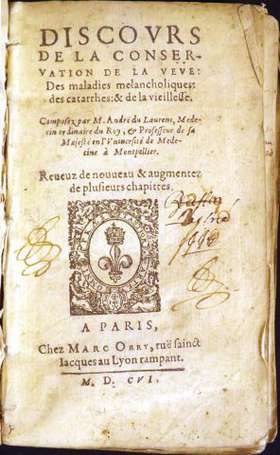 DISCOVRS
DE LA CONSER-
VATION DE LA VEVE:
Des maladies melancholiques:
des catarrhes: & de la vieillesse.
Composez par M. André du Laurens, Mede-
cin ordinaire du Roy, & Professeur de sa
Majesté en l'Vniuersité de Mede-
cine à Montpellier.
Reueuz de nouueau & augmentez
de plusieurs chapitres.
A PARIS,
Chez MARC ORRY, ruë sainct
Iacques au Lyon rampant.
M. D. CVI.